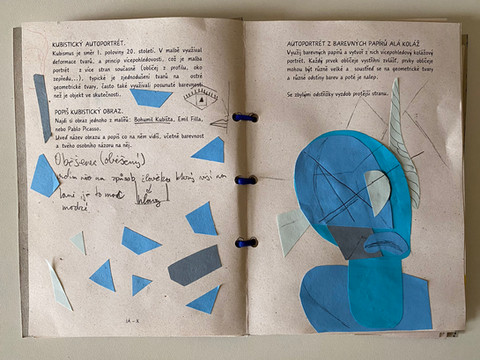 KUBISTICKÝ AUTOPORTRÉT.
Kubismus je směr 1. poloviny 20. století. V malbě využíval
deformace tvarů, a princip vícepohledovosti, což je malba
portrét z více stran současně (obličej z profilu, oko
zepředu...), typické je zjednodušení tvarů na ostré
geometrické tvary, často také využívají posunuté barevnosti,
než je objekt ve skutečnosti.
POPIŠ KUBISTICKÝ OBRAZ.
Najdi si obraz jednoho z malířů: Bohumil Kubišta, Emil Filla,
nebo Pablo Picasso.
Uveď název obrazu a popiš co na něm vidíš, včetně barevnosti
a tvého osobního názoru na něj.
Oběšenec (oběšený)
vidím něco na způsob člověka který visí na
laně je to moc
hlavy
modré
AUTOPORTRÉT Z BAREVNÝCH PAPÍRŮ ALÁ KOLÁŽ
Využij barevných papírů a vytvoř z nich vícepohledový kolážový
portrét. Každý prvek obličeje vystřihni zvlášť, prvky obličeje
mohou být různě velké a soustřeď se na geometrické tvary
a různé odstíny barev a poté je nalep.
Se zbylým odstřižky vyzdob protější stranu.